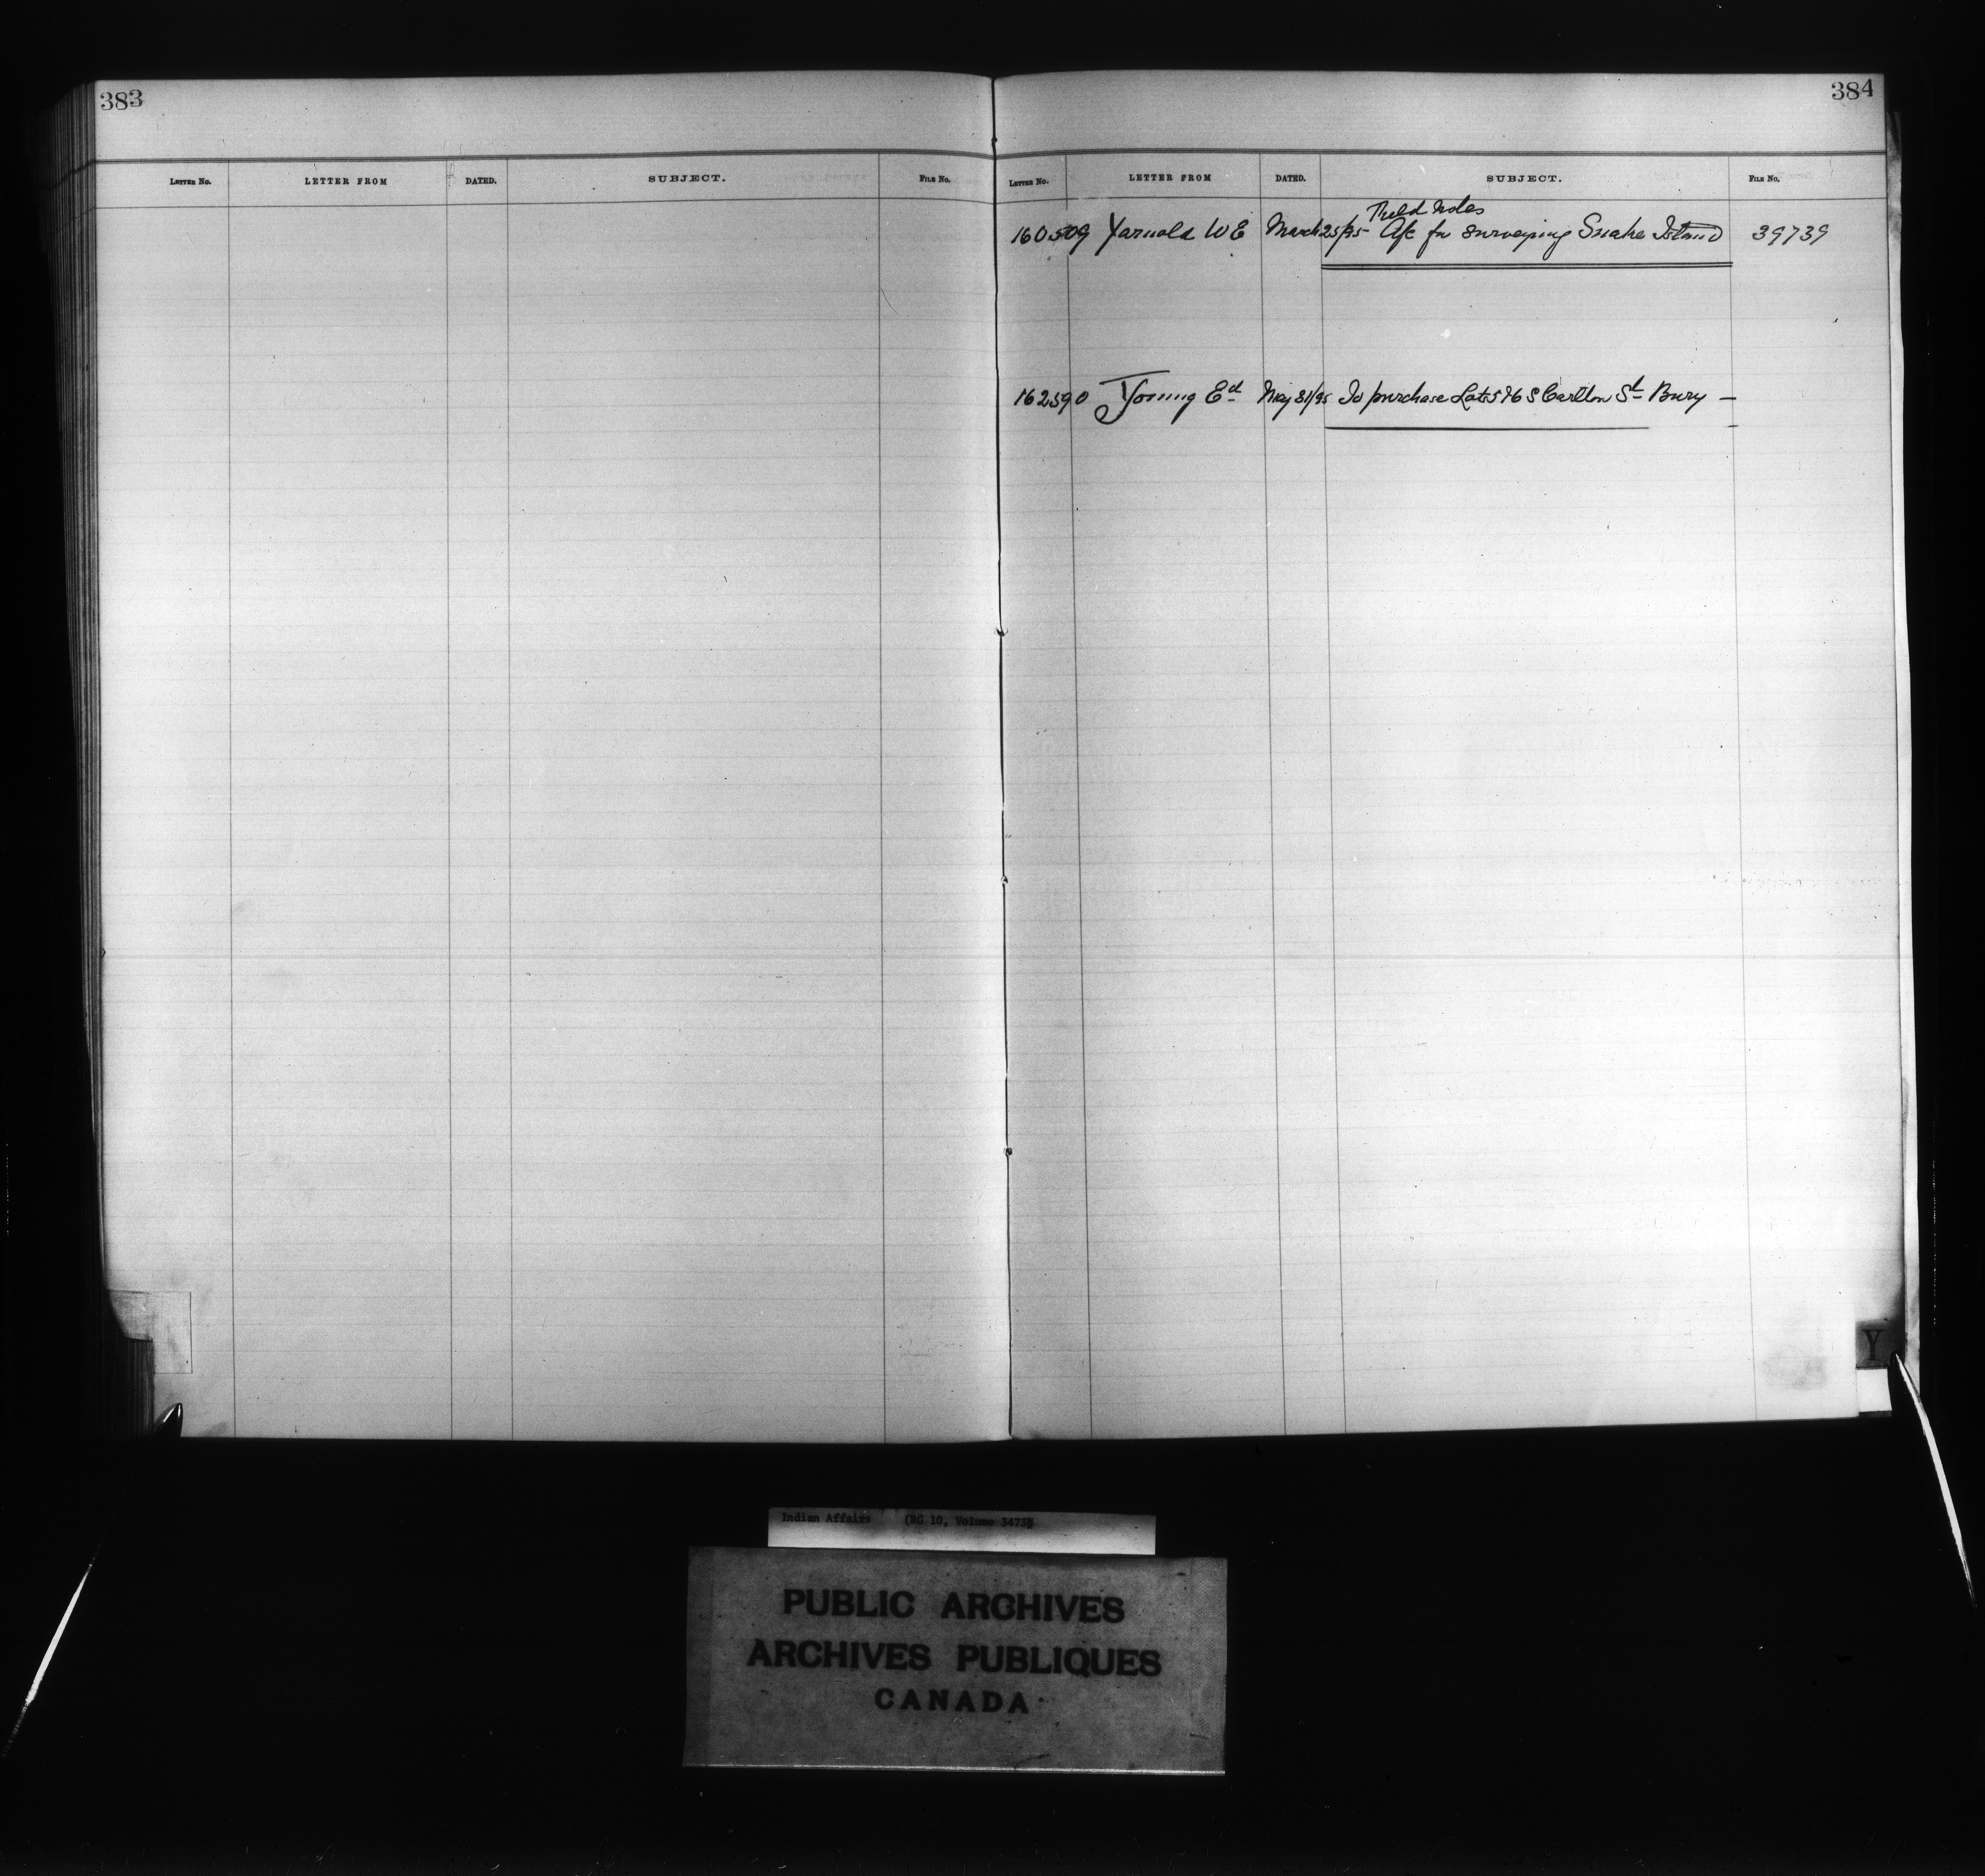 383
384
LETTER NO. LETTER FROM DATED. SUBJECT. FILE NO.
LETTER NO. LETTER FROM DATED. SUBJECT. FILE NO.
Field Notes
160509 Yarnold W E March 25/95 A/c for surveying Snake Island 39739
162590 Young Ed May 31/95 To purchase Lots 5 & 6 S Carlton St Bury —
Y
Indian Affairs (RG 10, Volume 3473)
PUBLIC ARCHIVES
ARCHIVES PUBLIQUES
CANADA